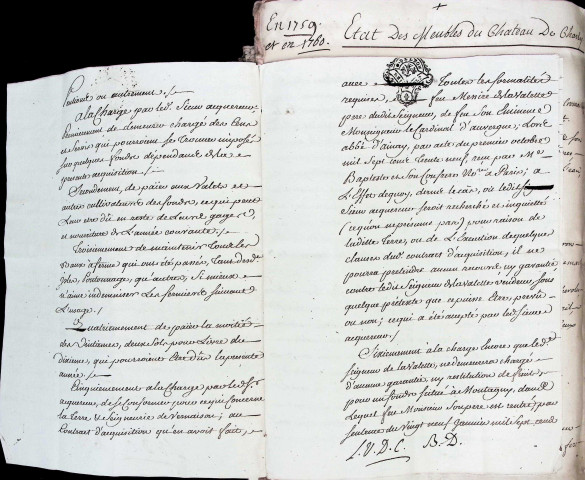 En 1759
et en 1760.
Etat Des Meubles du Chateau De
pendant ou autrement. /.
a la Charge par led. Sieur acquereur
Premierement de demeurer chargé des Cens
et Servis qui pourroient se trouver imposés
sur quelques fonds dependants de la
presente acquisition /
Secondement, de païer aux Valets et
autres cultivateurs des fonds, ce qui peut
Leur etre dû en reste de Leurs gages,
et nourriture de L'année courante. /.
Troisiemement de maintenir tous les
Baux a ferme qui ont été passés, tant des d.
que autres, si mieux
n'aime indemniser Les fermiers suivant
L'usage. /
Quatriemement de païer la moitié
des Vintiemes, deux sols pour Livre du
dixieme, qui pourroient être dûs la presente
année. /.
Cinquiemement a la Charge par led. Sr.
acquereur, de se conformer pour ce qui concerne
La Terre, et Seigneurie de Vernaison; au
Contrat d'acquisition qu'en avoit fait,
avec Toutes Les formalités
requises, feu Messire de la Valette
pere dud. Seigneur, de feu Son Eminence
Monseigneur le Cardinal d'auvergne, Lors
abbé d'ainay, par acte du premier octobre
mil sept cent trente neuf, reçu par Me.
Baptiste et son Confrere Nores. a Paris; a
L'Effet de quoy, dans le cas, où ledit
Sieur acquereur seroit recherché et inquietté
(ce qu'on ne presume pas) pour raison de
ladite Terre, ou de L'Execution de quelque
clauses du d. contrat d'acquisition, il ne
pourra pretendre aucun recours, ny garantie,
contre ledit Seigneur de la Valette Vendeur, sous
quelque pretexte que ce puisse être, prevû
ou non; ce qui a été accepté par led. Sieur
acquereur /
Sixiemement a la charge encore que led.
Seigneur de la Valette, ne demeurera chargé
d'aucune garantie, ny restitution de fruits,
pour un fonds situé à Montagny, dans
Lequel feu Monsieur Son pere est rentré, par
sentence du Vingt neuf Janvier mil Sept cent
L. V. D. C. B. D.